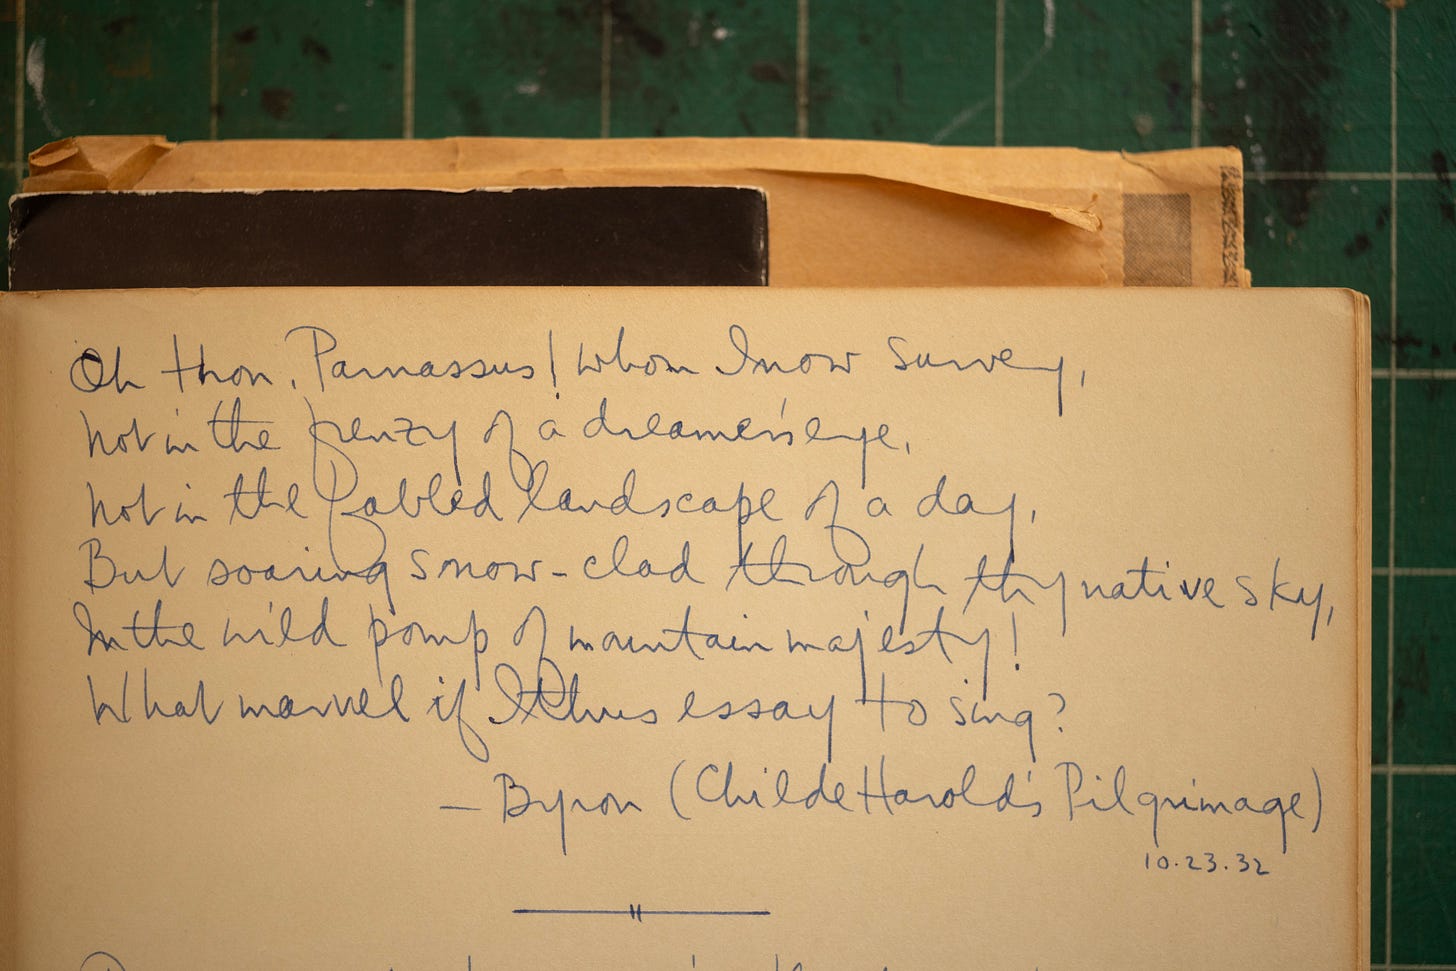 Oh thou, Parnassus! whom I now survey,
Not in the frenzy of a dreamer's eye,
Not in the fabled landscape of a day,
But soaring snow-clad through thy native sky,
In the wild pomp of mountain majesty!
What marvel if I thus essay to sing?
— Byron (Childe Harold's Pilgrimage)
10.23.32